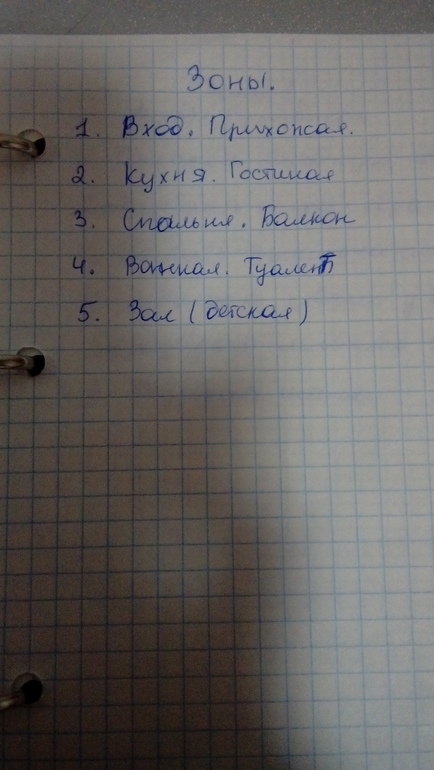 Зоны.
1. Вход. Прихожая.
2. Кухня. Гостиная
3. Спальня. Балкон
4. Ванная. Туалет
5. Зал (детская)